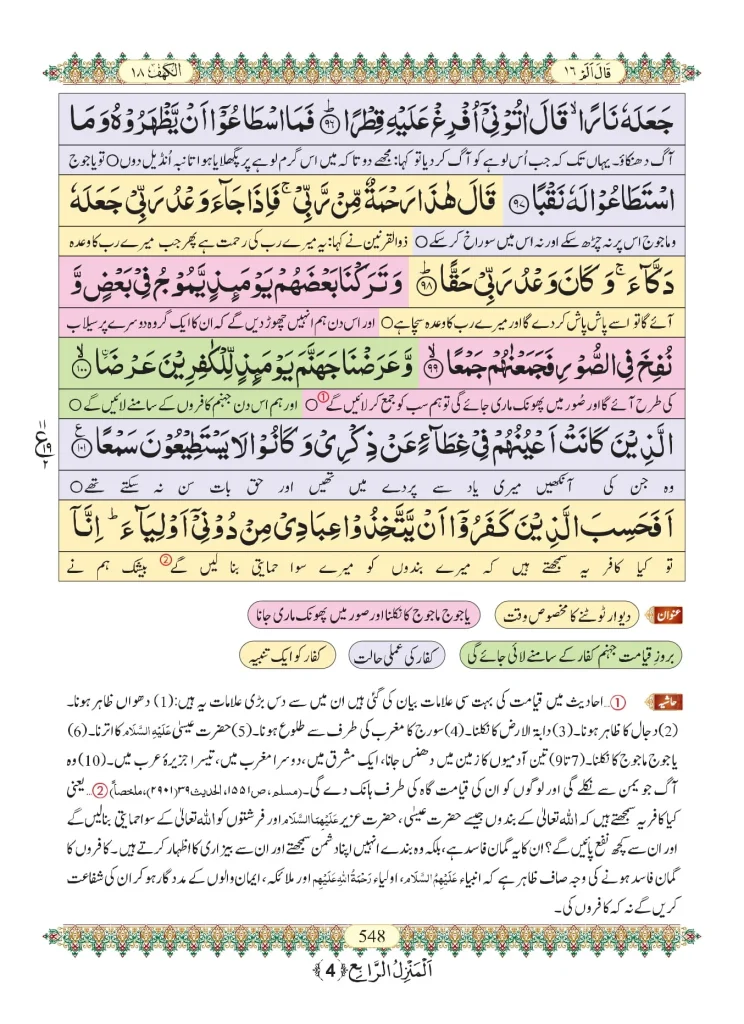 قَالَ اَلَمْ ١٦
الكهف ١٨
جَعَلَهٗ نَارًا ۙ قَالَ اٰتُوْنِیْۤ اُفْرِغْ عَلَیْهِ قِطْرًا ؕ﴿۹۶﴾ فَمَا اسْطَاعُوْۤا اَنْ یَّظْهَرُوْهُ وَ مَا
آگ دھنکاؤ۔ یہاں تک کہ جب اُس لوہے کو آگ کردیا تو کہا: مجھے دو تا کہ میں اس گرم لوہے پر پگھلایا ہوا تانبہ اُنڈیل دوں ○ تو یاجوج
اسْتَطَاعُوْا لَهٗ نَقْبًا ﴿۹۷﴾ قَالَ هٰذَا رَحْمَةٌ مِّنْ رَّبِّیْ ۚ فَاِذَا جَآءَ وَعْدُ رَبِّیْ جَعَلَهٗ
وماجوج اس پر نہ چڑھ سکے اور نہ اس میں سوراخ کر سکے ○ ذوالقرنین نے کہا: یہ میرے رب کی رحمت ہے پھر جب میرے رب کا وعدہ
دَكَّآءَ ۚ وَ كَانَ وَعْدُ رَبِّیْ حَقًّا ؕ﴿۹۸﴾ وَ تَرَكْنَا بَعْضَهُمْ یَوْمَىٕذٍ یَّمُوْجُ فِیْ بَعْضٍ وَّ
آئے گا تو اسے پاش پاش کردے گا اور میرے رب کا وعدہ سچا ہے ○ اور اس دن ہم انہیں چھوڑ دیں گے کہ ان کا ایک گروہ دوسرے پر سیلاب
نُفِخَ فِی الصُّوْرِ فَجَمَعْنٰهُمْ جَمْعًا ۙ﴿۹۹﴾ وَّ عَرَضْنَا جَهَنَّمَ یَوْمَىٕذٍ لِّلْكٰفِرِیْنَ عَرْضَا ۙ﴿۱۰۰﴾
کی طرح آئے گا اور صُور میں پھونک ماری جائے گی تو ہم سب کو جمع کر لائیں گے ① ○ اور ہم اس دن جہنم کافروں کے سامنے لائیں گے ○
الَّذِیْنَ كَانَتْ اَعْیُنُهُمْ فِیْ غِطَآءٍ عَنْ ذِكْرِیْ وَ كَانُوْا لَا یَسْتَطِیْعُوْنَ سَمْعًا ﴿۱۰۱﴾ ع
۱۱
ع ۱۹
۲
وہ جن کی آنکھیں میری یاد سے پردے میں تھیں اور حق بات سن نہ سکتے تھے ○
اَفَحَسِبَ الَّذِیْنَ كَفَرُوْۤا اَنْ یَّتَّخِذُوْا عِبَادِیْ مِنْ دُوْنِیْۤ اَوْلِیَآءَ ؕ اِنَّاۤ
تو کیا کافر یہ سمجھتے ہیں کہ میرے بندوں کو میرے سوا حمایتی بنا لیں گے ② بیشک ہم نے
عنوان دیوار ٹوٹنے کا مخصوص وقت یاجوج ماجوج کا نکلنا اور صور میں پھونک ماری جانا
بروزِ قیامت جہنم کفار کے سامنے لائی جائے گی کفار کی عملی حالت کفار کو ایک تنبیہ
حاشیہ ①...احادیث میں قیامت کی بہت سی علامات بیان کی گئی ہیں ان میں سے دس بڑی علامات یہ ہیں: (1) دھواں ظاہر ہونا۔
(2) دجال کا ظاہر ہونا۔ (3) دابۃ الارض کا نکلنا۔ (4) سورج کا مغرب کی طرف سے طلوع ہونا۔ (5) حضرت عیسیٰ عَلَیْہِ السَّلَام کا اترنا۔ (6)
یاجوج ماجوج کا نکلنا۔ (7 تا 9) تین آدمیوں کا زمین میں دھنس جانا، ایک مشرق میں، دوسرا مغرب میں، تیسرا جزیرۂ عرب میں۔ (10) وہ
آگ جو یمن سے نکلے گی اور لوگوں کو ان کی قیامت گاہ کی طرف ہانک دے گی۔ (مسلم، ص۱۵۵۱، الحدیث:۳۹(۲۹۰۱)، ملخصاً) ②...یعنی
کیا کافر یہ سمجھتے ہیں کہ اللہ تعالیٰ کے بندوں جیسے حضرت عیسیٰ، حضرت عزیر عَلَیْہِمَا السَّلَام اور فرشتوں کو اللہ تعالیٰ کے سوا حمایتی بنا لیں گے
اور ان سے کچھ نفع پائیں گے؟ ان کا یہ گمان فاسد ہے، بلکہ وہ بندے انہیں اپنا دشمن سمجھتے اور ان سے بیزاری کا اظہار کرتے ہیں۔ کافروں کا
گمان فاسد ہونے کی وجہ صاف ظاہر ہے کہ انبیاء عَلَیْہِمُ السَّلَام، اولیاء رَحْمَۃُ اللہِ عَلَیْہِم اور ملائکہ، ایمان والوں کے مددگار ہو کر ان کی شفاعت
کریں گے نہ کہ کافروں کی۔
548
اَلْمَنْزِلُ الرَّابِع ﴿4﴾